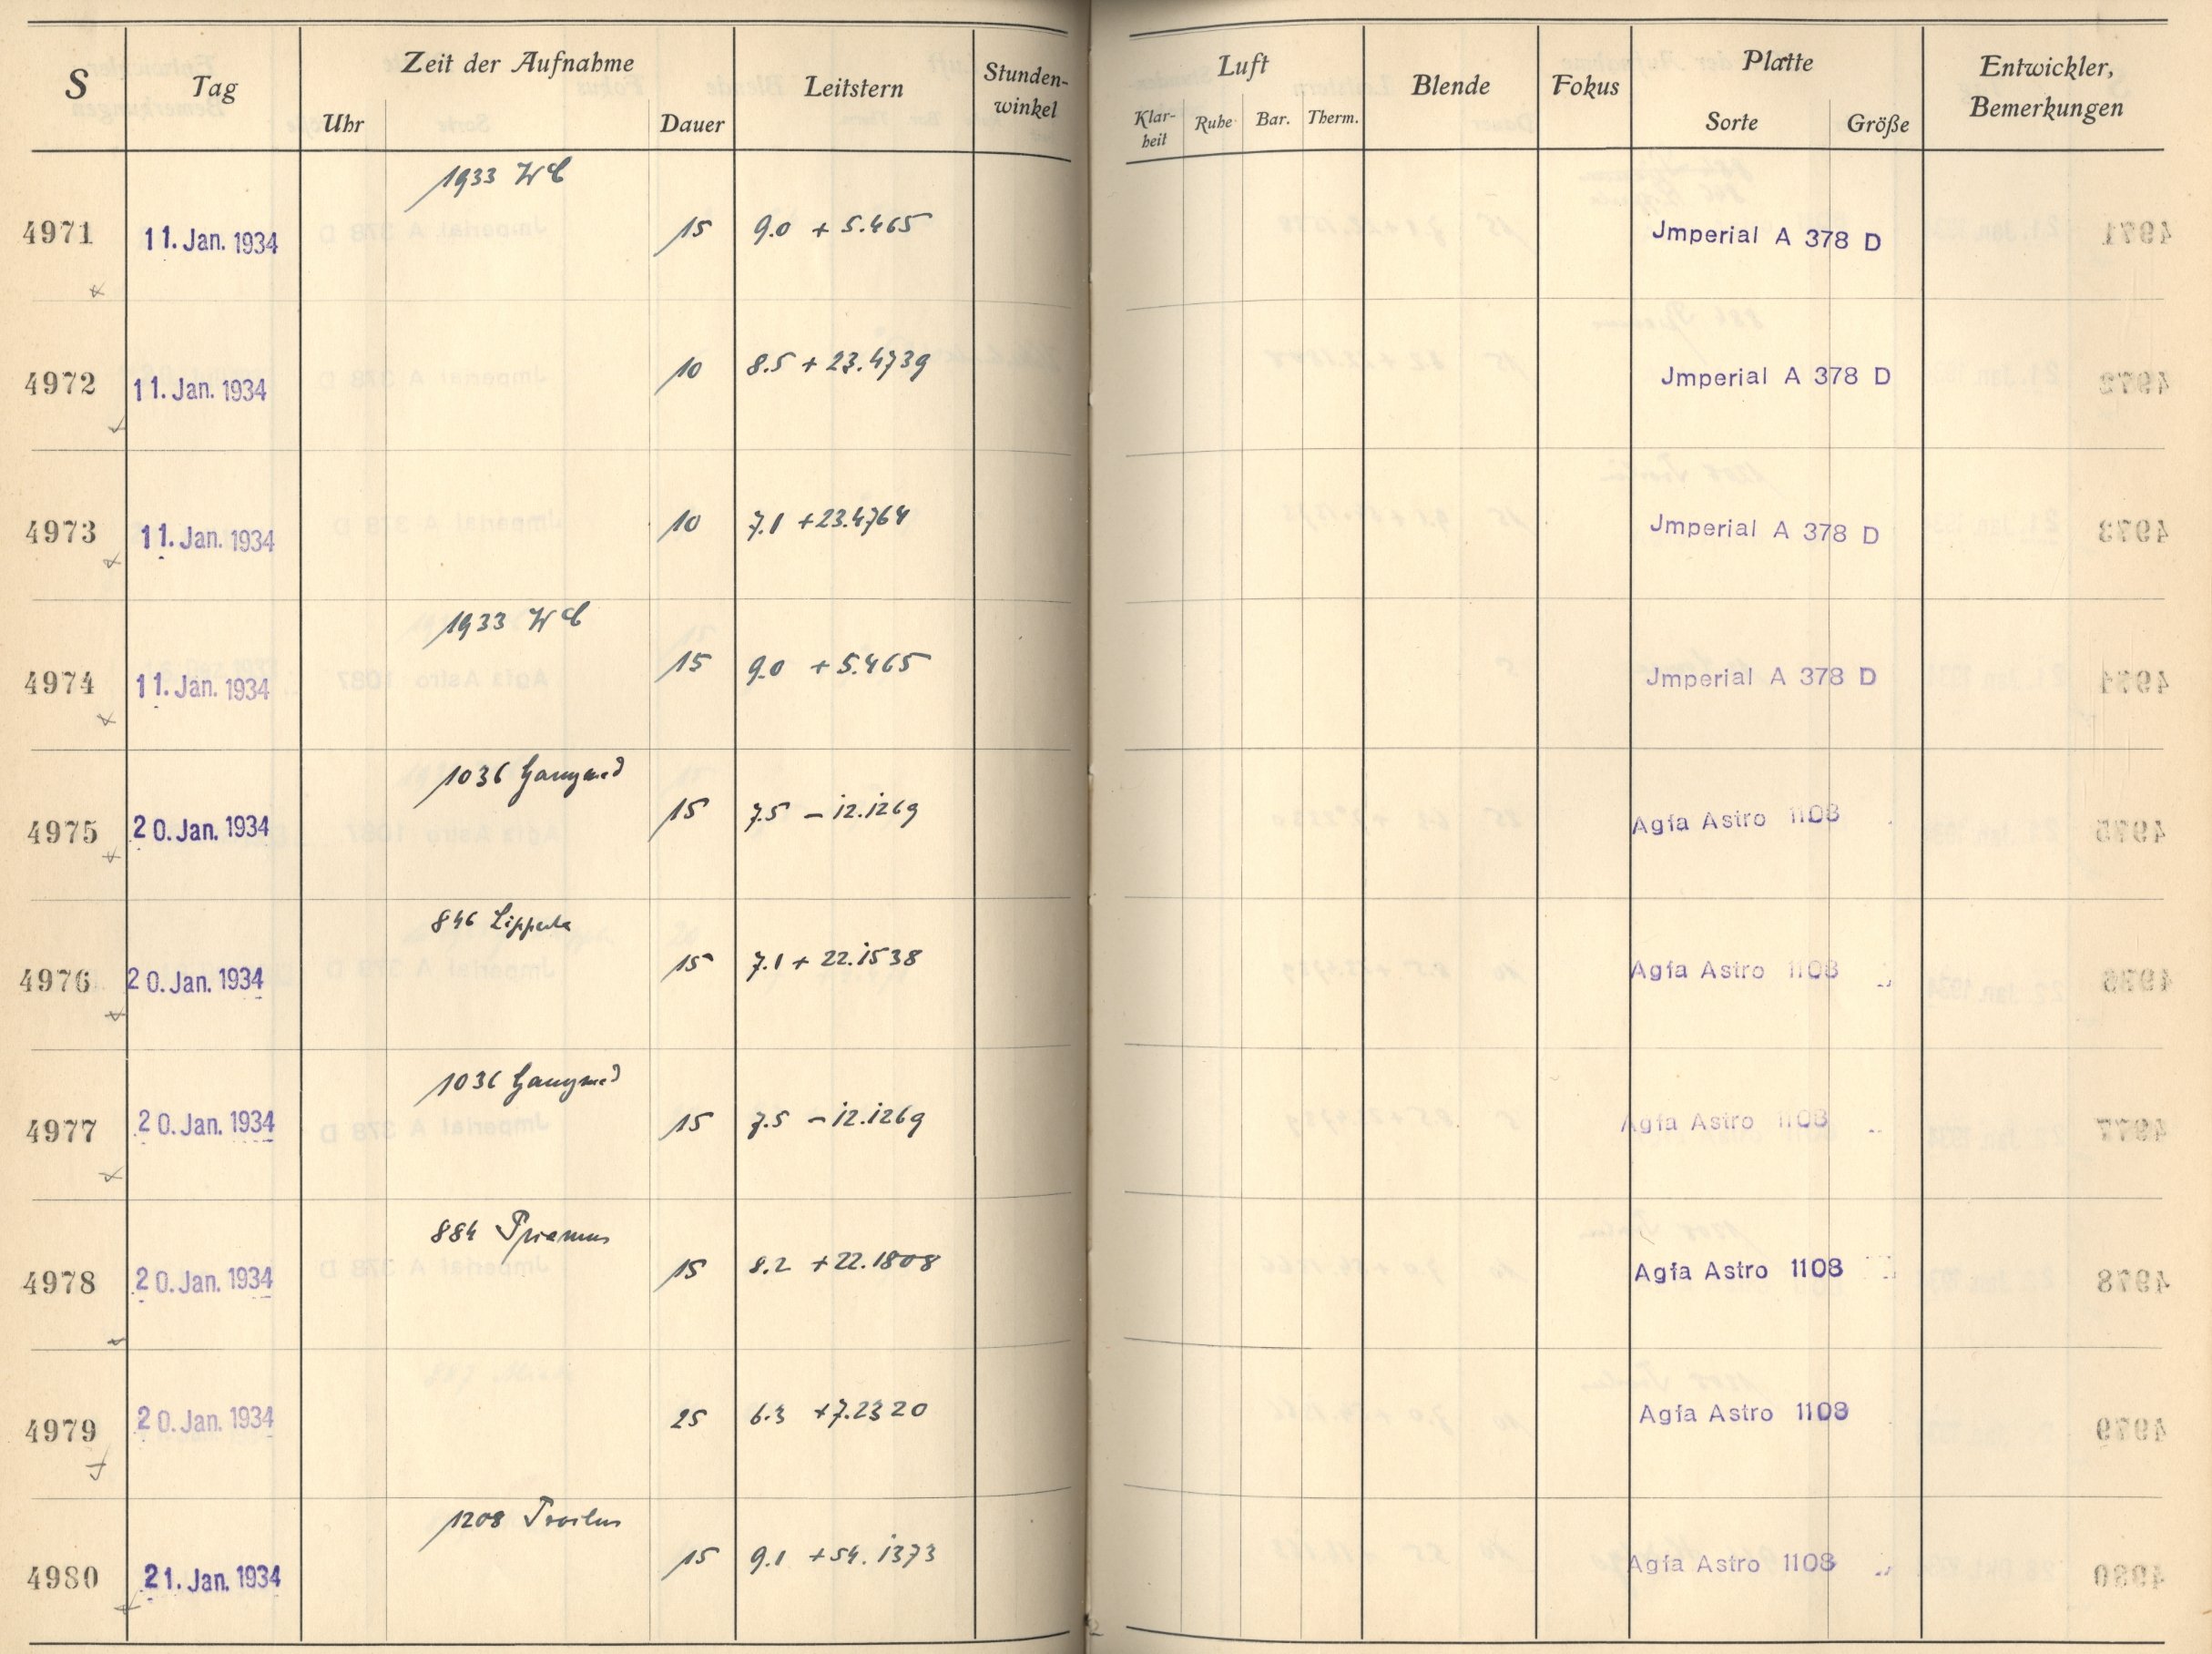 S Tag Zeit der Aufnahme Leitstern Stunden-winkel Luft Blende Fokus Platte Entwickler, Bemerkungen
Uhr Dauer Klar-heit Ruhe Bar. Therm. Sorte Größe
1933 W
4971 11. Jan. 1934 15 9.0 + 5.465 Jmperial A 378 D
4972 11. Jan. 1934 10 8.5 + 23.4739 Jmperial A 378 D
4973 11. Jan. 1934 10 7.1 + 23.4764 Jmperial A 378 D
1933 W
4974 11. Jan. 1934 15 9.0 + 5.465 Jmperial A 378 D
1036 Ganymed
4975 20. Jan. 1934 15 7.5 - 12.1269 Agfa Astro 1108
846 Lipperta
4976 20. Jan. 1934 15 7.1 + 22.1538 Agfa Astro 1108
1036 Ganymed
4977 20. Jan. 1934 15 7.5 - 12.1269 Agfa Astro 1108
884 Priamus
4978 20. Jan. 1934 15 8.2 + 22.1808 Agfa Astro 1108
4979 20. Jan. 1934 25 6.3 + 7.2320 Agfa Astro 1108
1208 Troilus
4980 21. Jan. 1934 15 9.1 + 54.1373 Agfa Astro 1108